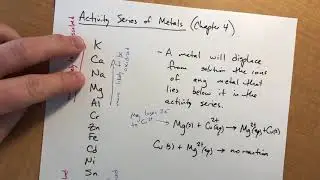 Activity Series of Metals (Chapter 4)
K
Ca
Na
Mg
Al
Cr
Zn
Fe
Cd
Ni
Sn
- A metal will displace
from solution the ions
of any metal that
lies below it in the
activity series.
Mg loses 2e⁻
to Cu²⁺
Mg(s) + Cu²⁺(aq) → Mg²⁺(aq) + Cu(s)
Cu(s) + Mg²⁺(aq) → no reaction